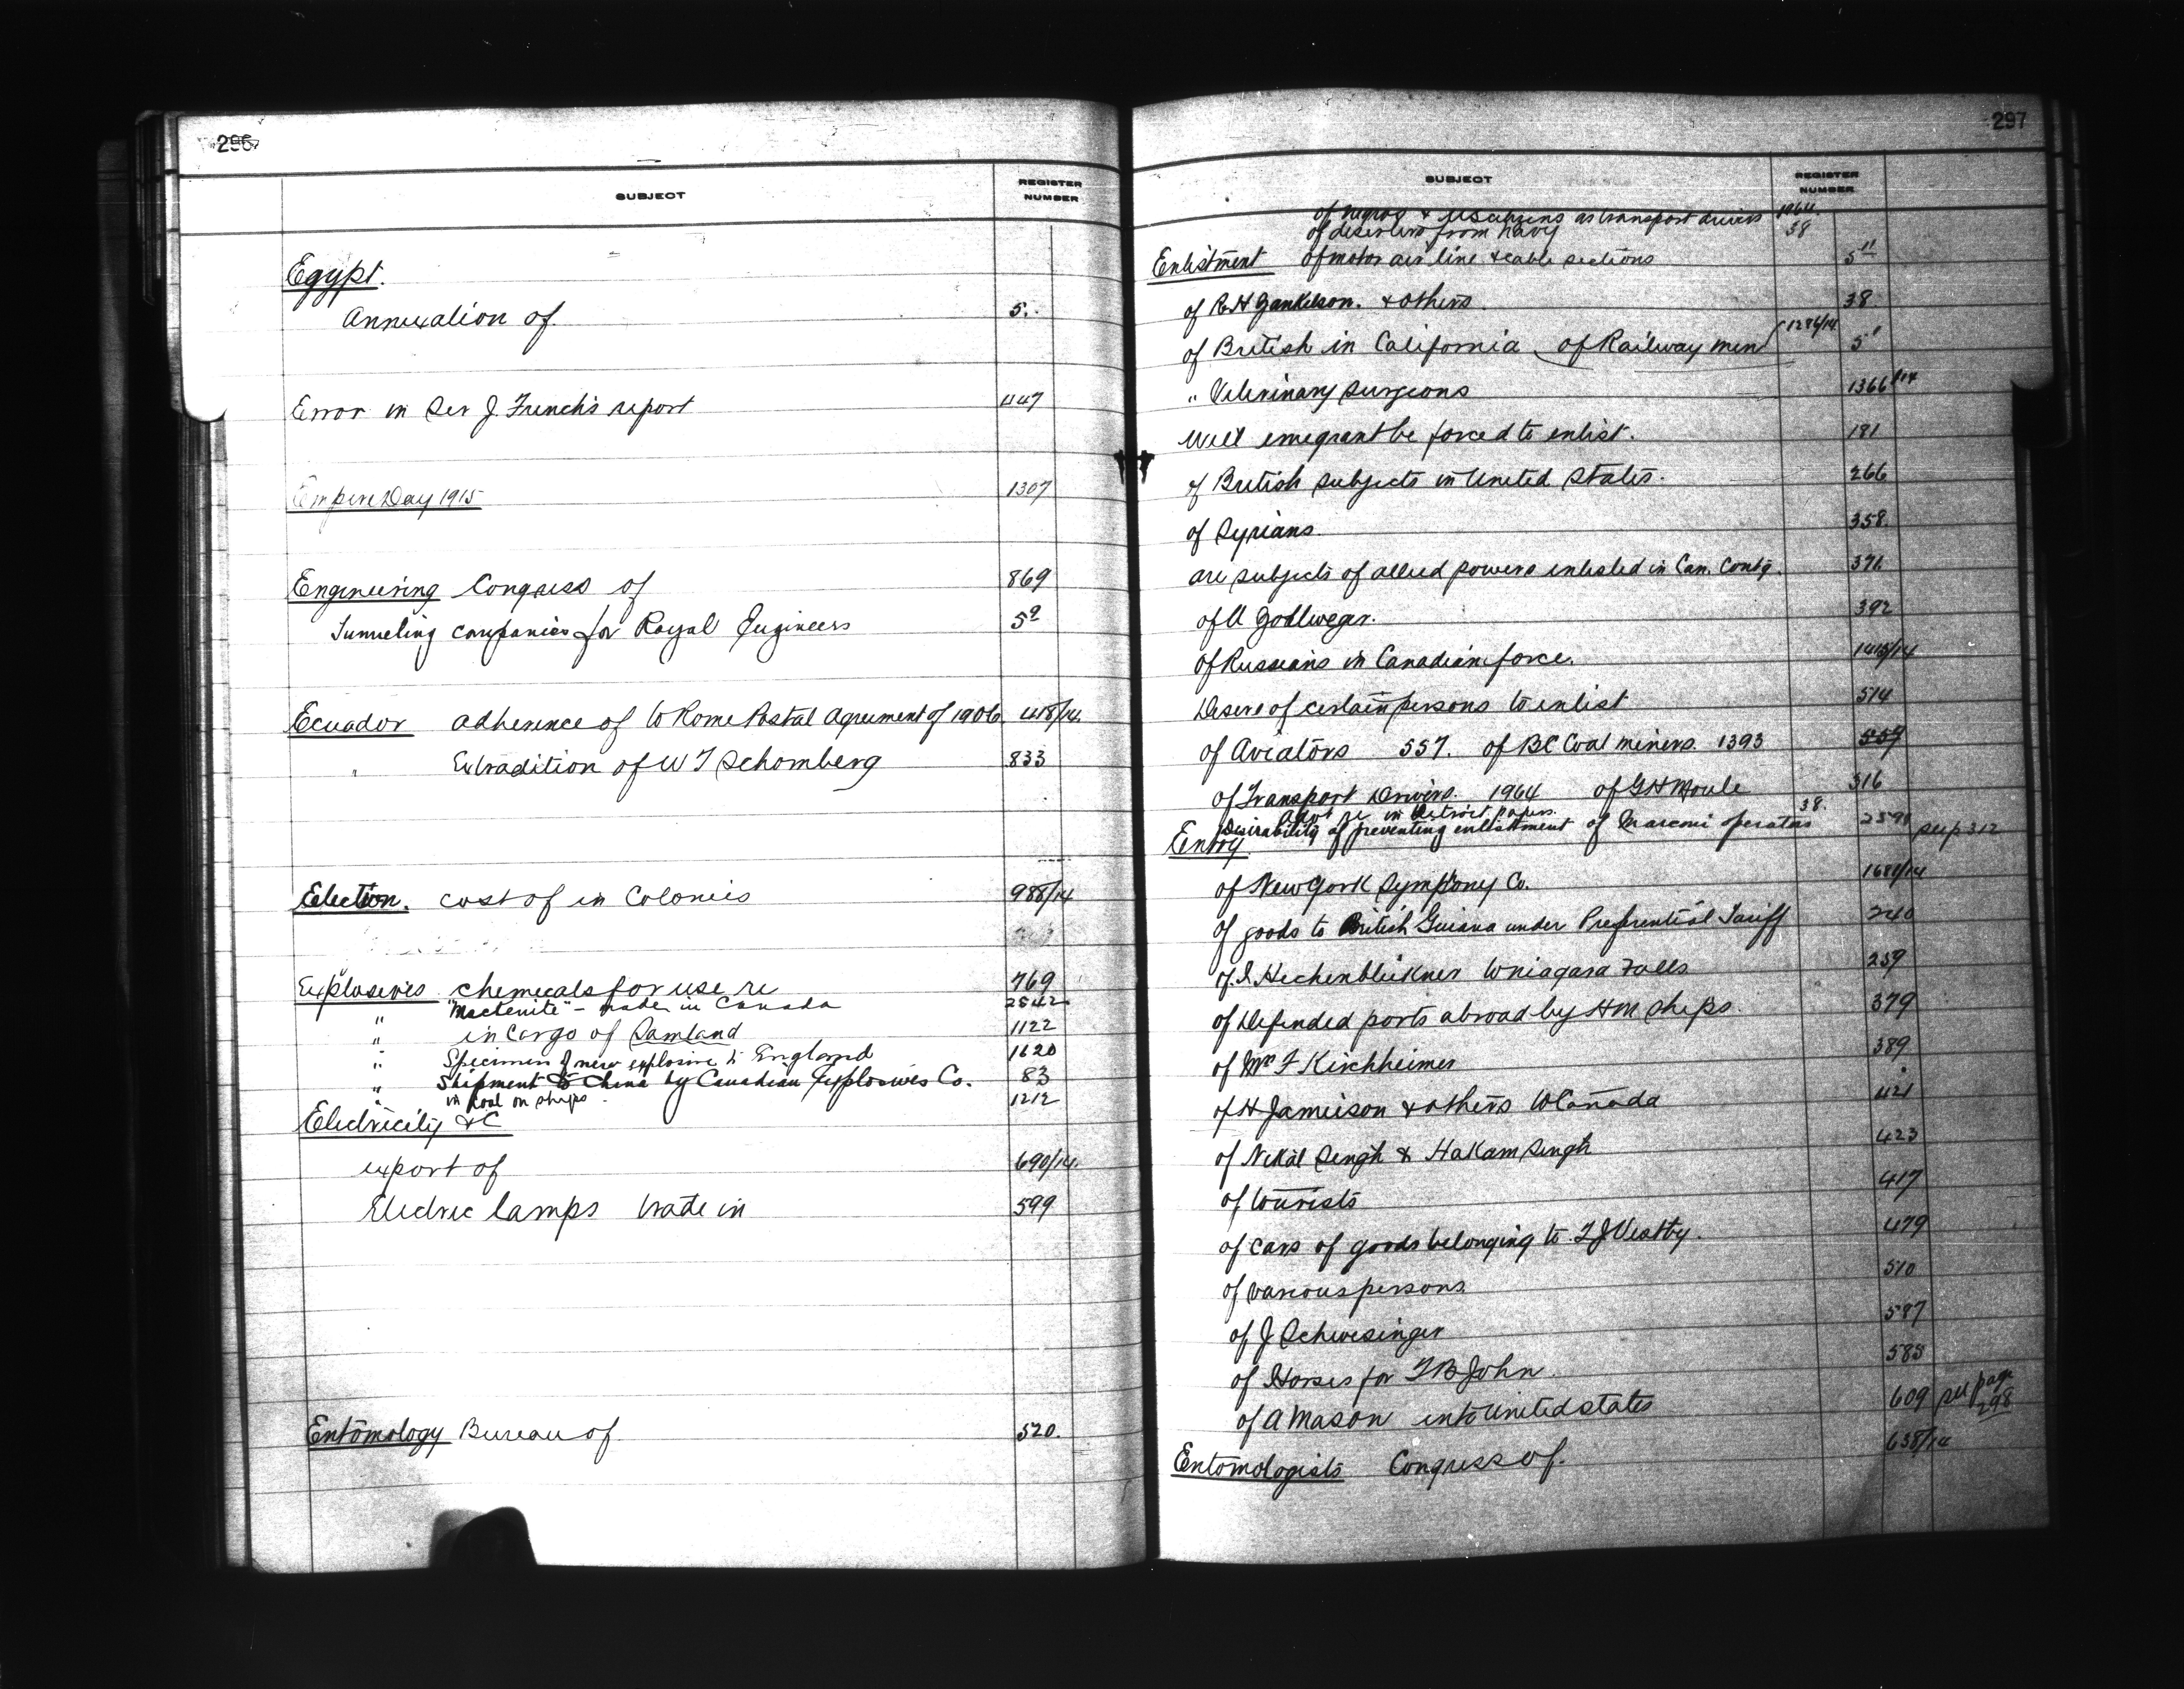 296
SUBJECT REGISTER NUMBER
Egypt.
Annexation of. 5.
Error in Sir J. French's report 1147
Empire Day 1915 1307
Engineering Congress of 869
Tunneling companies for Royal Engineers 5a
Ecuador adherence of to Rome Postal Agreement of 1906 418/14
" Extradition of W T Schomberg 833
Election. cost of in Colonies 988/14
Explosives chemicals for use re 769
" "Mactenite" - made in Canada 2542
" in cargo of Samland 1122
" Specimen of new explosive to England 1620
" Shipment to China by Canadian Explosives Co. 83
" in coal on ships. 1212
Electricity &c
export of 690/14.
Electric lamps trade in 599
Entomology Bureau of 520.
297
SUBJECT REGISTER NUMBER
of negros & US citizens as transport drivers 1964
of deserters from navy 38
Enlistment of motor air line & cable sections 5"
of R H & others. 38
of British in California of Railway men 1286/14 5"
" Veterinary Surgeons 1366/14
Will emigrant be forced to enlist. 181
of British subjects in United States. 266
of Syrians. 358.
are subjects of allied powers enlisted in Can. Contg. 371.
of A 392
of Russians in Canadian force. 1415/14
Desire of certain persons to enlist 514
of Aviators 557. of BC Coal miners. 1393 557
of Transport Drivers. 1964 of G H Moule 516
Advt re in Detroit papers. 38.
Desirability of preventing enlistment of Marconi operators 2591 see p 312
Entry
of New York Symphony Co. 1681/14
of goods to British Guiana under Preferential Tariff 240
of I. Hechenbleikner to Niagara Falls 259
of Defended ports abroad by HM Ships. 379
of Mr F Kirchheimer 389
of H Jameison & others to Canada 421
of Nekal Singh & Hakam Singh 423
of tourists 417
of cars of goods belonging to T J Westby. 479
of various persons. 510
of J Schwesinger 587
of Horses for T B John. 585
of A Mason into United States 609 see page 298
Entomologists Congress of. 638/14